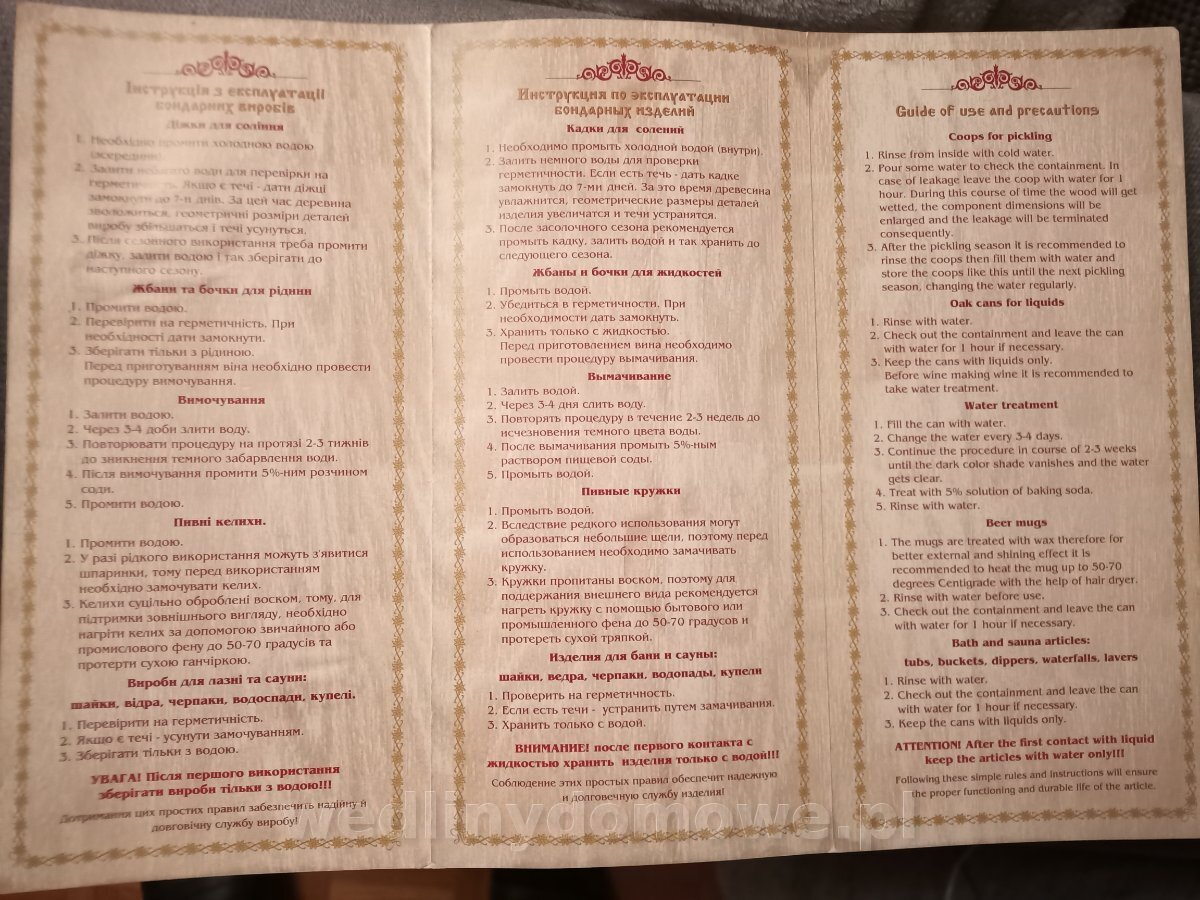 Інструкція з експлуатації
бондарних виробів
Діжки для соління
1. Необхідно промити холодною водою
(всередині).
2. Залити небагато води для перевірки на
герметичність. Якщо є течі - дати діжці
замокнути до 7-п днів. За цей час деревина
зволожиться, геометричні розміри деталей
виробу збільшаться і течі усунуться.
3. Після сезонного використання треба промити
діжку, залити водою і так зберігати до
наступного сезону.
Жбани та бочки для рідини
1. Промити водою.
2. Перевірити на герметичність. При
необхідності дати замокнути.
3. Зберігати тільки з рідиною.
Перед приготуванням віна необхідно провести
процедуру вимочування.
Вимочування
1. Залити водою.
2. Через 3-4 доби злити воду.
3. Повторювати процедуру на протязі 2-3 тижнів
до зникнення темного забарвлення води.
4. Після вимочування промити 5%-ним розчином
соди.
5. Промити водою.
Пивні келихи.
1. Промити водою.
2. У разі рідкого використання можуть з'явитися
шпаринки, тому перед використанням
необхідно замочувати келих.
3. Келихи суцільно оброблені воском, тому, для
підтримки зовнішнього вигляду, необхідно
нагріти келих за допомогою звичайного або
промислового фену до 50-70 градусів та
протерти сухою ганчіркою.
Вироби для лазні та сауни:
шайки, відра, черпаки, водоспади, купелі.
1. Перевірити на герметичність.
2. Якщо є течі - усунути замочуванням.
3. Зберігати тільки з водою.
УВАГА! Після першого використання
зберігати вироби тільки з водою!!!
Дотримання цих простих правил забезпечить надійну й
довговічну службу виробу!
Инструкция по эксплуатации
бондарных изделий
Кадки для солений
1. Необходимо промыть холодной водой (внутри).
2. Залить немного воды для проверки
герметичности. Если есть течь - дать кадке
замокнуть до 7-ми дней. За это время древесина
увлажнится, геометрические размеры деталей
изделия увеличатся и течи устранятся.
3. После засолочного сезона рекомендуется
промыть кадку, залить водой и так хранить до
следующего сезона.
Жбаны и бочки для жидкостей
1. Промыть водой.
2. Убедиться в герметичности. При
необходимости дать замокнуть.
3. Хранить только с жидкостью.
Перед приготовлением вина необходимо
провести процедуру вымачивания.
Вымачивание
1. Залить водой.
2. Через 3-4 дня слить воду.
3. Повторять процедуру в течение 2-3 недель до
исчезновения темного цвета воды.
4. После вымачивания промыть 5%-ным
раствором пищевой соды.
5. Промыть водой.
Пивные кружки
1. Промыть водой.
2. Вследствие редкого использования могут
образоваться небольшие щели, поэтому перед
использованием необходимо замачивать
кружку.
3. Кружки пропитаны воском, поэтому для
поддержания внешнего вида рекомендуется
нагреть кружку с помощью бытового или
промышленного фена до 50-70 градусов и
протереть сухой тряпкой.
Изделия для бани и сауны:
шайки, ведра, черпаки, водопады, купели
1. Проверить на герметичность.
2. Если есть течи - устранить путем замачивания.
3. Хранить только с водой.
ВНИМАНИЕ! после первого контакта с
жидкостью хранить изделия только с водой!!!
Соблюдение этих простых правил обеспечит надежную
и долговечную службу изделия!
Guide of use and precautions
Coops for pickling
1. Rinse from inside with cold water.
2. Pour some water to check the containment. In
case of leakage leave the coop with water for 1
hour. During this course of time the wood will get
wetted, the component dimensions will be
enlarged and the leakage will be terminated
consequently.
3. After the pickling season it is recommended to
rinse the coops then fill them with water and
store the coops like this until the next pickling
season, changing the water regularly.
Oak cans for liquids
1. Rinse with water.
2. Check out the containment and leave the can
with water for 1 hour if necessary.
3. Keep the cans with liquids only.
Before wine making wine it is recommended to
take water treatment.
Water treatment
1. Fill the can with water.
2. Change the water every 3-4 days.
3. Continue the procedure in course of 2-3 weeks
until the dark color shade vanishes and the water
gets clear.
4. Treat with 5% solution of baking soda.
5. Rinse with water.
Beer mugs
1. The mugs are treated with wax therefore for
better external and shining effect it is
recommended to heat the mug up to 50-70
degrees Centigrade with the help of hair dryer.
2. Rinse with water before use.
3. Check out the containment and leave the can
with water for 1 hour if necessary.
Bath and sauna articles:
tubs, buckets, dippers, waterfalls, lavers
1. Rinse with water.
2. Check out the containment and leave the can
with water for 1 hour if necessary.
3. Keep the cans with liquids only.
ATTENTION! After the first contact with liquid
keep the articles with water only!!!
Following these simple rules and instructions will ensure
the proper functioning and durable life of the article.
wedlinydomowe.pl